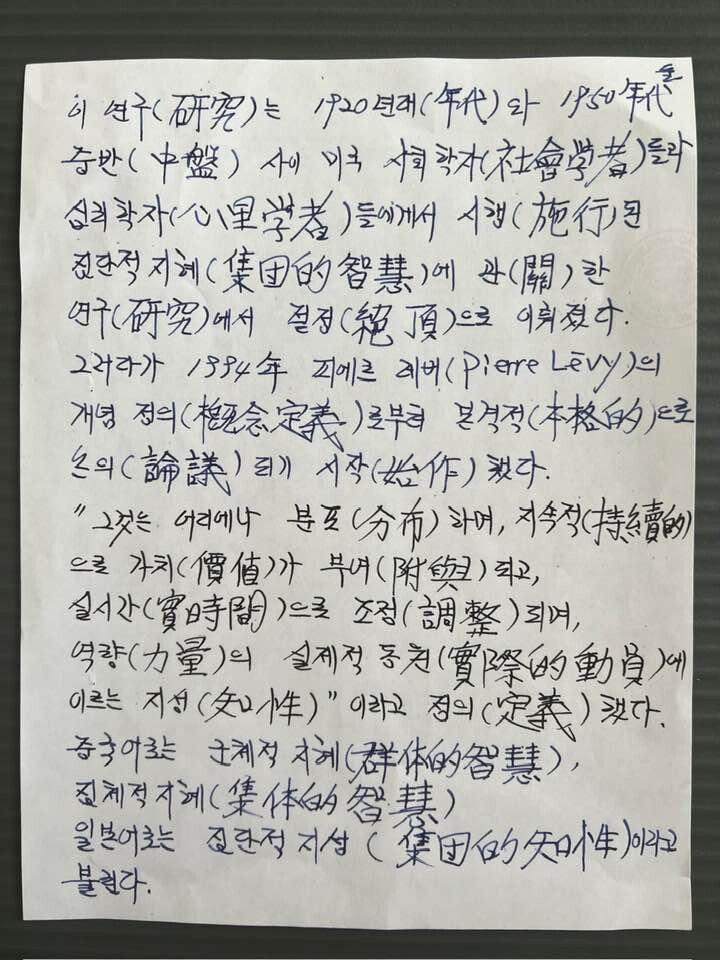 이 연구(研究)는 1920년대(年代)와 1950年代 初
중반(中盤) 사이 미국 사회학자(社會學者)들과
심리학자(心里学者)들에게서 시행(施行)된
집단적지혜(集团的智慧)에 관(關)한
연구(研究)에서 절정(絕頂)으로 이뤄졌다.
그러다가 1994年 피에르 레비(Pierre Lēvy)의
개념 정의(槪念定義)로부터 본격적(本格的)으로
논의(論議)되기 시작(始作)했다.
"그것은 어디에나 분포(分布)하며, 지속적(持續的)
으로 가치(價値)가 부여(附與)되고,
실시간(實時間)으로 조정(調整)되며,
역량(力量)의 실제적 동원(實際的動員)에
이르는 지성(知性)"이라고 정의(定義)했다.
중국어로는 군체적 지혜(群体的智慧),
집체적지혜(集体的智慧)
일본어로는 집단적 지성(集団的知性)이라고
불린다.